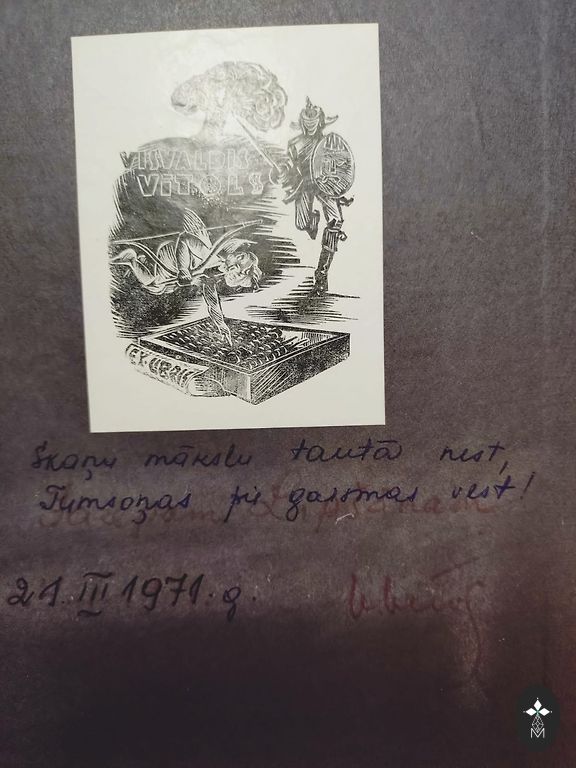 VISVALDIS
VĪTOLS
EX-LIBRIS
Skaņu mākslu tautā nest,
Tumsoņas pie gaismas vest!
21. III 1971. g.
M